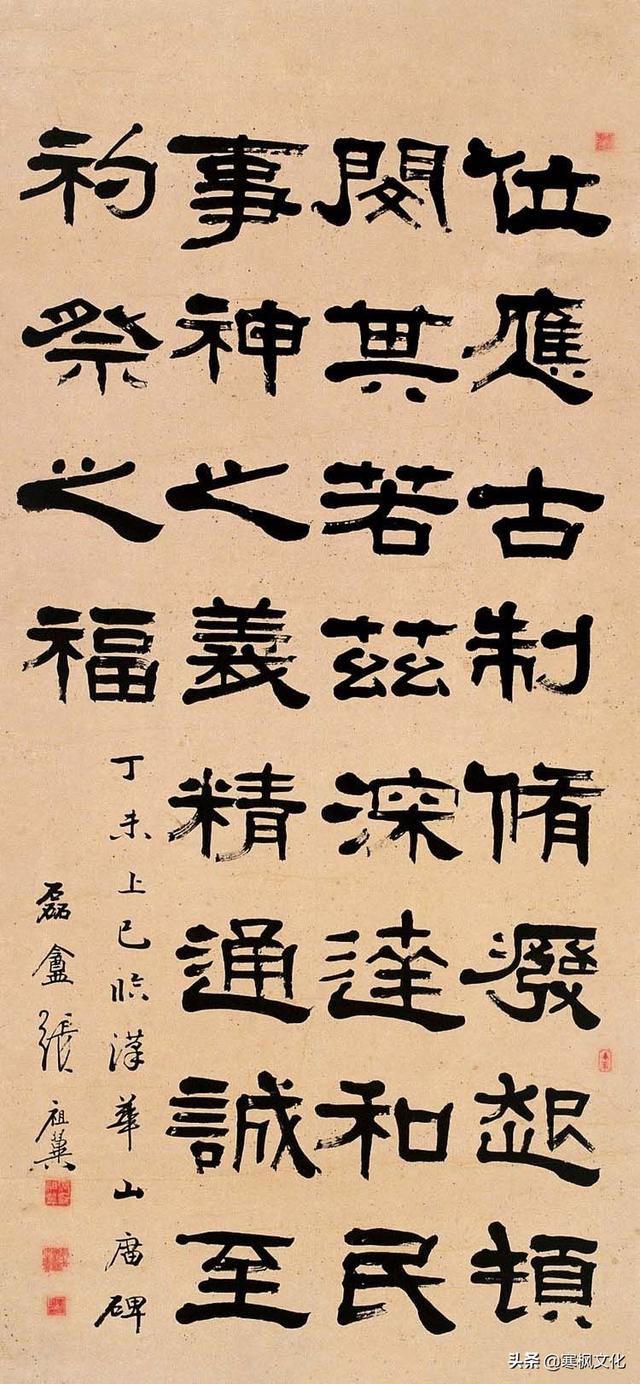 位應古制脩廢起頓
閔其若茲深達和民
事神之義精通誠至
礿祭之福
丁未上巳臨漢華山廟碑
磊盦張祖翼
头条 @寒枫文化